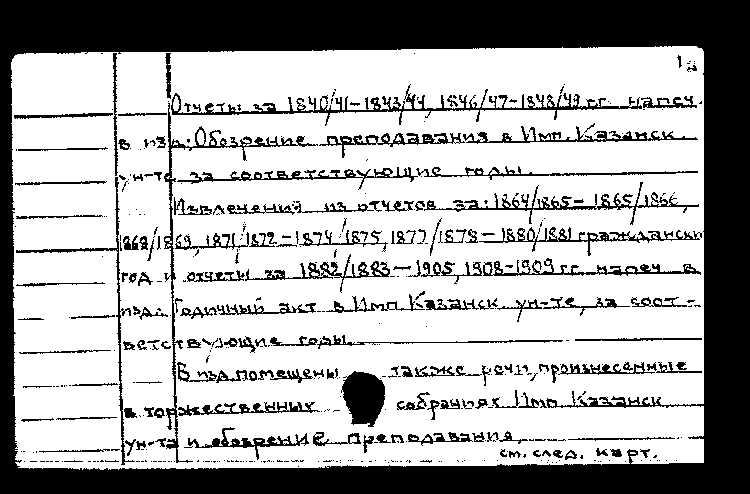 1а
Отчеты за 1840/41-1843/44, 1846/47-1848/49 гг. напеч.
в изд.: Обозрение преподавания в Имп. Казанск.
ун-те за соответствующие годы.
Извлечений из отчетов за: 1864/1865- 1865/1866,
1868/1869, 1871/1872-1874/1875, 1877/1878-1880/1881 граждански
год и отчеты за 1882/1883-1905, 1908-1909 гг. напеч в
изд.: Годичный акт в Имп. Казанск. ун-те, за соот-
ветствующие годы.
В изд. помещены также речи, произнесенные
в торжественных собраниях Имп. Казанск
ун-та и обозрение преподавания.
см. след. карт.